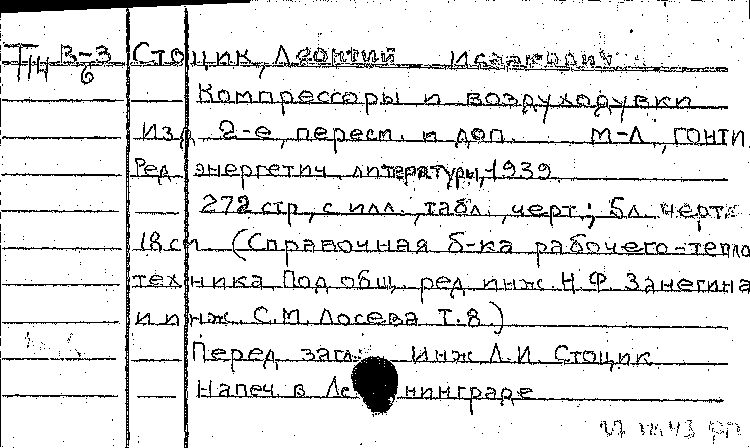 Тп4 В-3/6 Стоцик, Леонтий Исаакович
Компрессоры и воздуходувки
Изд 2-е, пересм. и доп. М-Л, ГОНТИ
Ред энергетич. литературы, 1939
272 стр, с илл., табл., черт; 5л. черт
18см. (Справочная б-ка рабочего-тепло
техника Под общ. ред инж. Н.Ф. Занегина
и инж. С.М. Лосева Т.8)
Перед загл: Инж Л.И. Стоцик
Напеч в Ленинграде